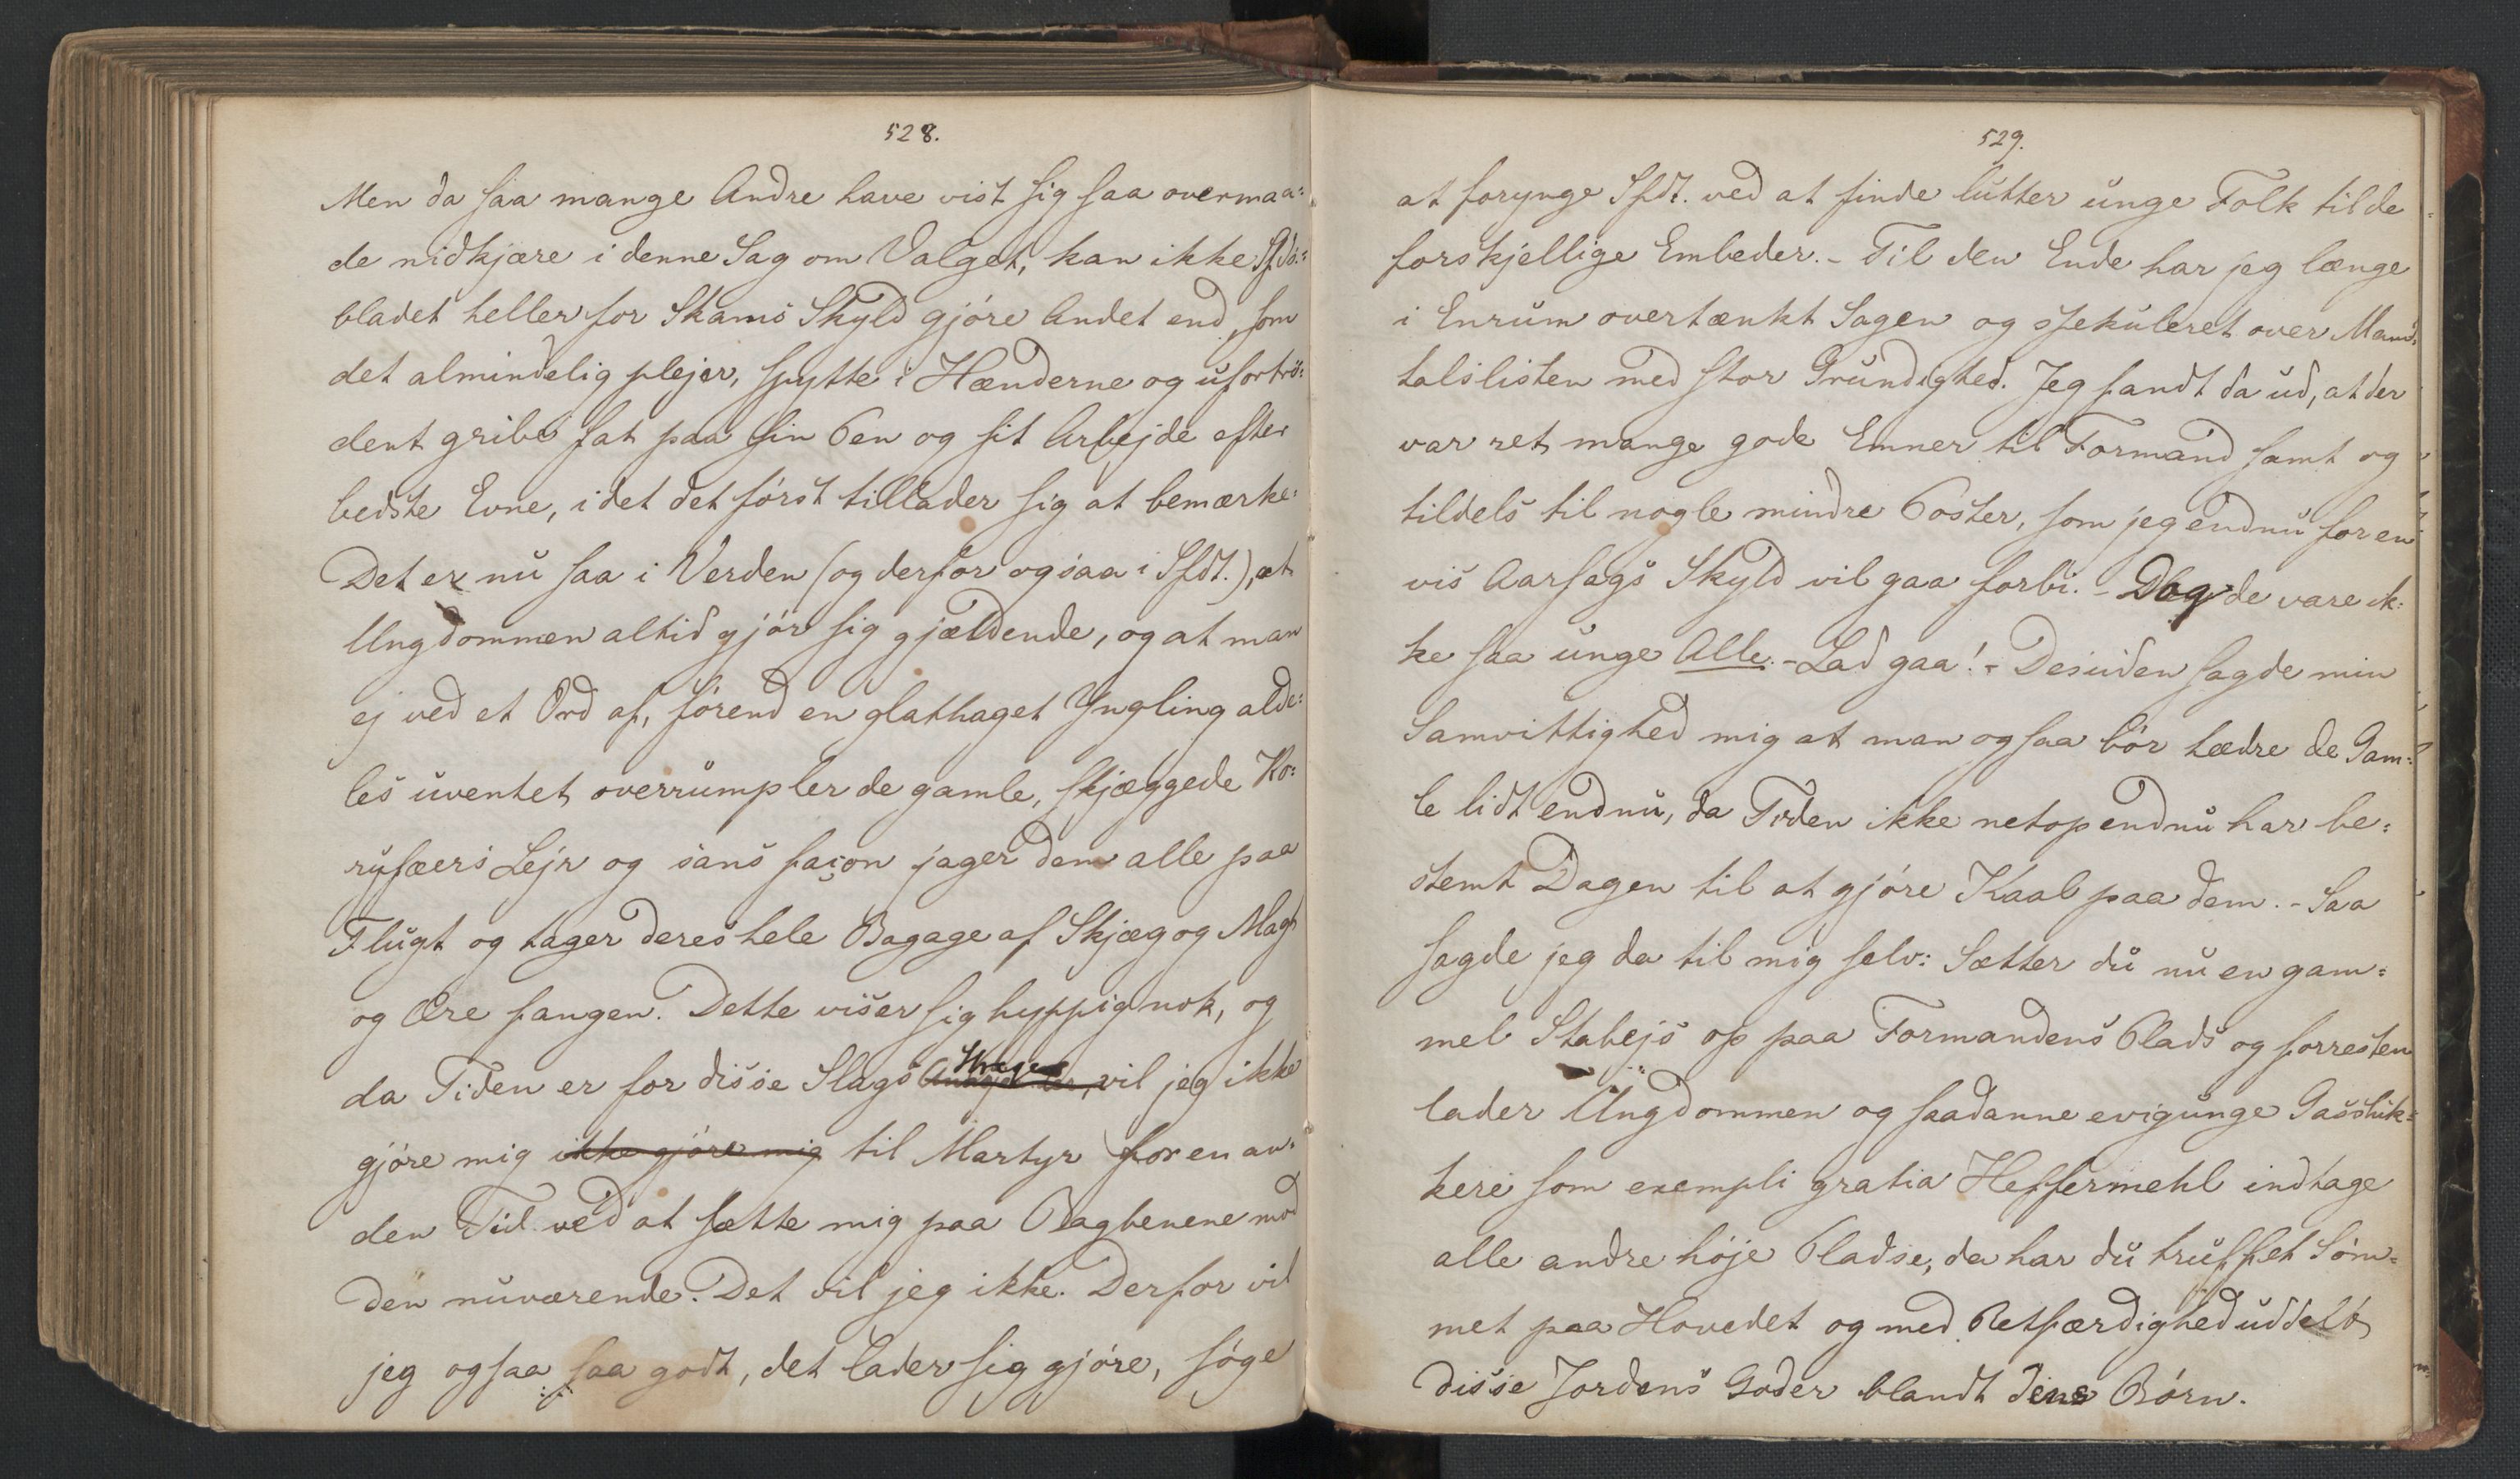 528.
Men da saa mange Andre have vist sig saa overmaa-
de nidkjære i denne Sag om Valget, kan ikke Sfds.-
bladet heller for Skams Skyld gjøre Andet end, som
det almindelig plejer, spytte i Hænderne og ufortrø-
dent gribe fat paa sin Pen og sit Arbejde efter
bedste Evne, idet det først tillader sig at bemærke:
Det er nu saa i Verden (og derfor ogsaa i Sfdt.), at
Ungdommen altid gjør sig gjældende, og at man
ej ved et Ord af, førend en glathaget Yngling alde-
les uventet overrumpler de gamle, skjæggede Ko-
ryfæers Lejr og sans façon jager dem alle paa
Flugt og tager deres hele Bagage af Skjæg og Magt
og Ære fangen. Dette viser sig hyppig nok, og
da Tiden er for disse Slags Streger vil jeg ikke
gjøre mig ikke gjøre mig til Martyr for en an-
den Tid ved at sætte mig paa Bagbenene mod
den nuværende. Det vil jeg ikke. Derfor vil
jeg ogsaa saa godt, det lader sig gjøre, søge
529.
at forynge Sfdt. ved at finde lutter unge Folk til de
forskjellige Embeder. - Til den Ende har jeg længe
i Enrum overtænkt Sagen og spekuleret over Mand-
talslisten med stor Grundighed. Jeg fandt da ud, at der
var ret mange gode Emner til Formand samt og
tildels til nogle mindre Poster, som jeg endnu for en
vis Aarsags Skyld vil gaa forbi. - Dog de vare ik-
ke saa unge Alle. - Lad gaa! - Desuden sagde min
Samvittighed mig at man ogsaa bør hædre de Gam-
le lidt endnu, da Tiden ikke netop endnu har be-
stemt Dagen til at gjøre Kaal paa dem. - Saa
sagde jeg da til mig selv: Sætter du nu en gam-
mel Stabejs op paa Formandens Plads og forresten
lader Ungdommen og saadanne evigunge Gasstik-
kere som exempli gratia Heffermehl indtage
alle andre høje Pladse, da har du truffet Søm-
met paa Hovedet og med Retfærdighed uddelt
disse Jordens Goder blandt dens Børn.